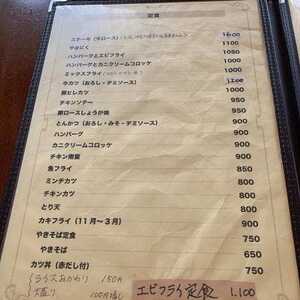 定食
ステーキ（牛ロース） 1600
やきにく 1100
ハンバーグとエビフライ 1050
ハンバーグとカニクリームコロッケ 1000
ミックスフライ 1000
牛カツ（おろし・デミソース） 1200
豚ヒレカツ 1000
チキンソテー 950
豚ロースしょうが焼 950
とんかつ（おろし・みそ・デミソース） 900
ハンバーグ 900
カニクリームコロッケ 900
チキン南蛮 900
魚フライ 850
ミンチカツ 800
チキンカツ 800
とり天 800
カキフライ（11月〜3月） 900
やきそば定食 750
やきそば 650
カツ丼（赤だし付） 750
ライスおかわり 150円
大盛り 100円増し
エビフライ定食 1,100